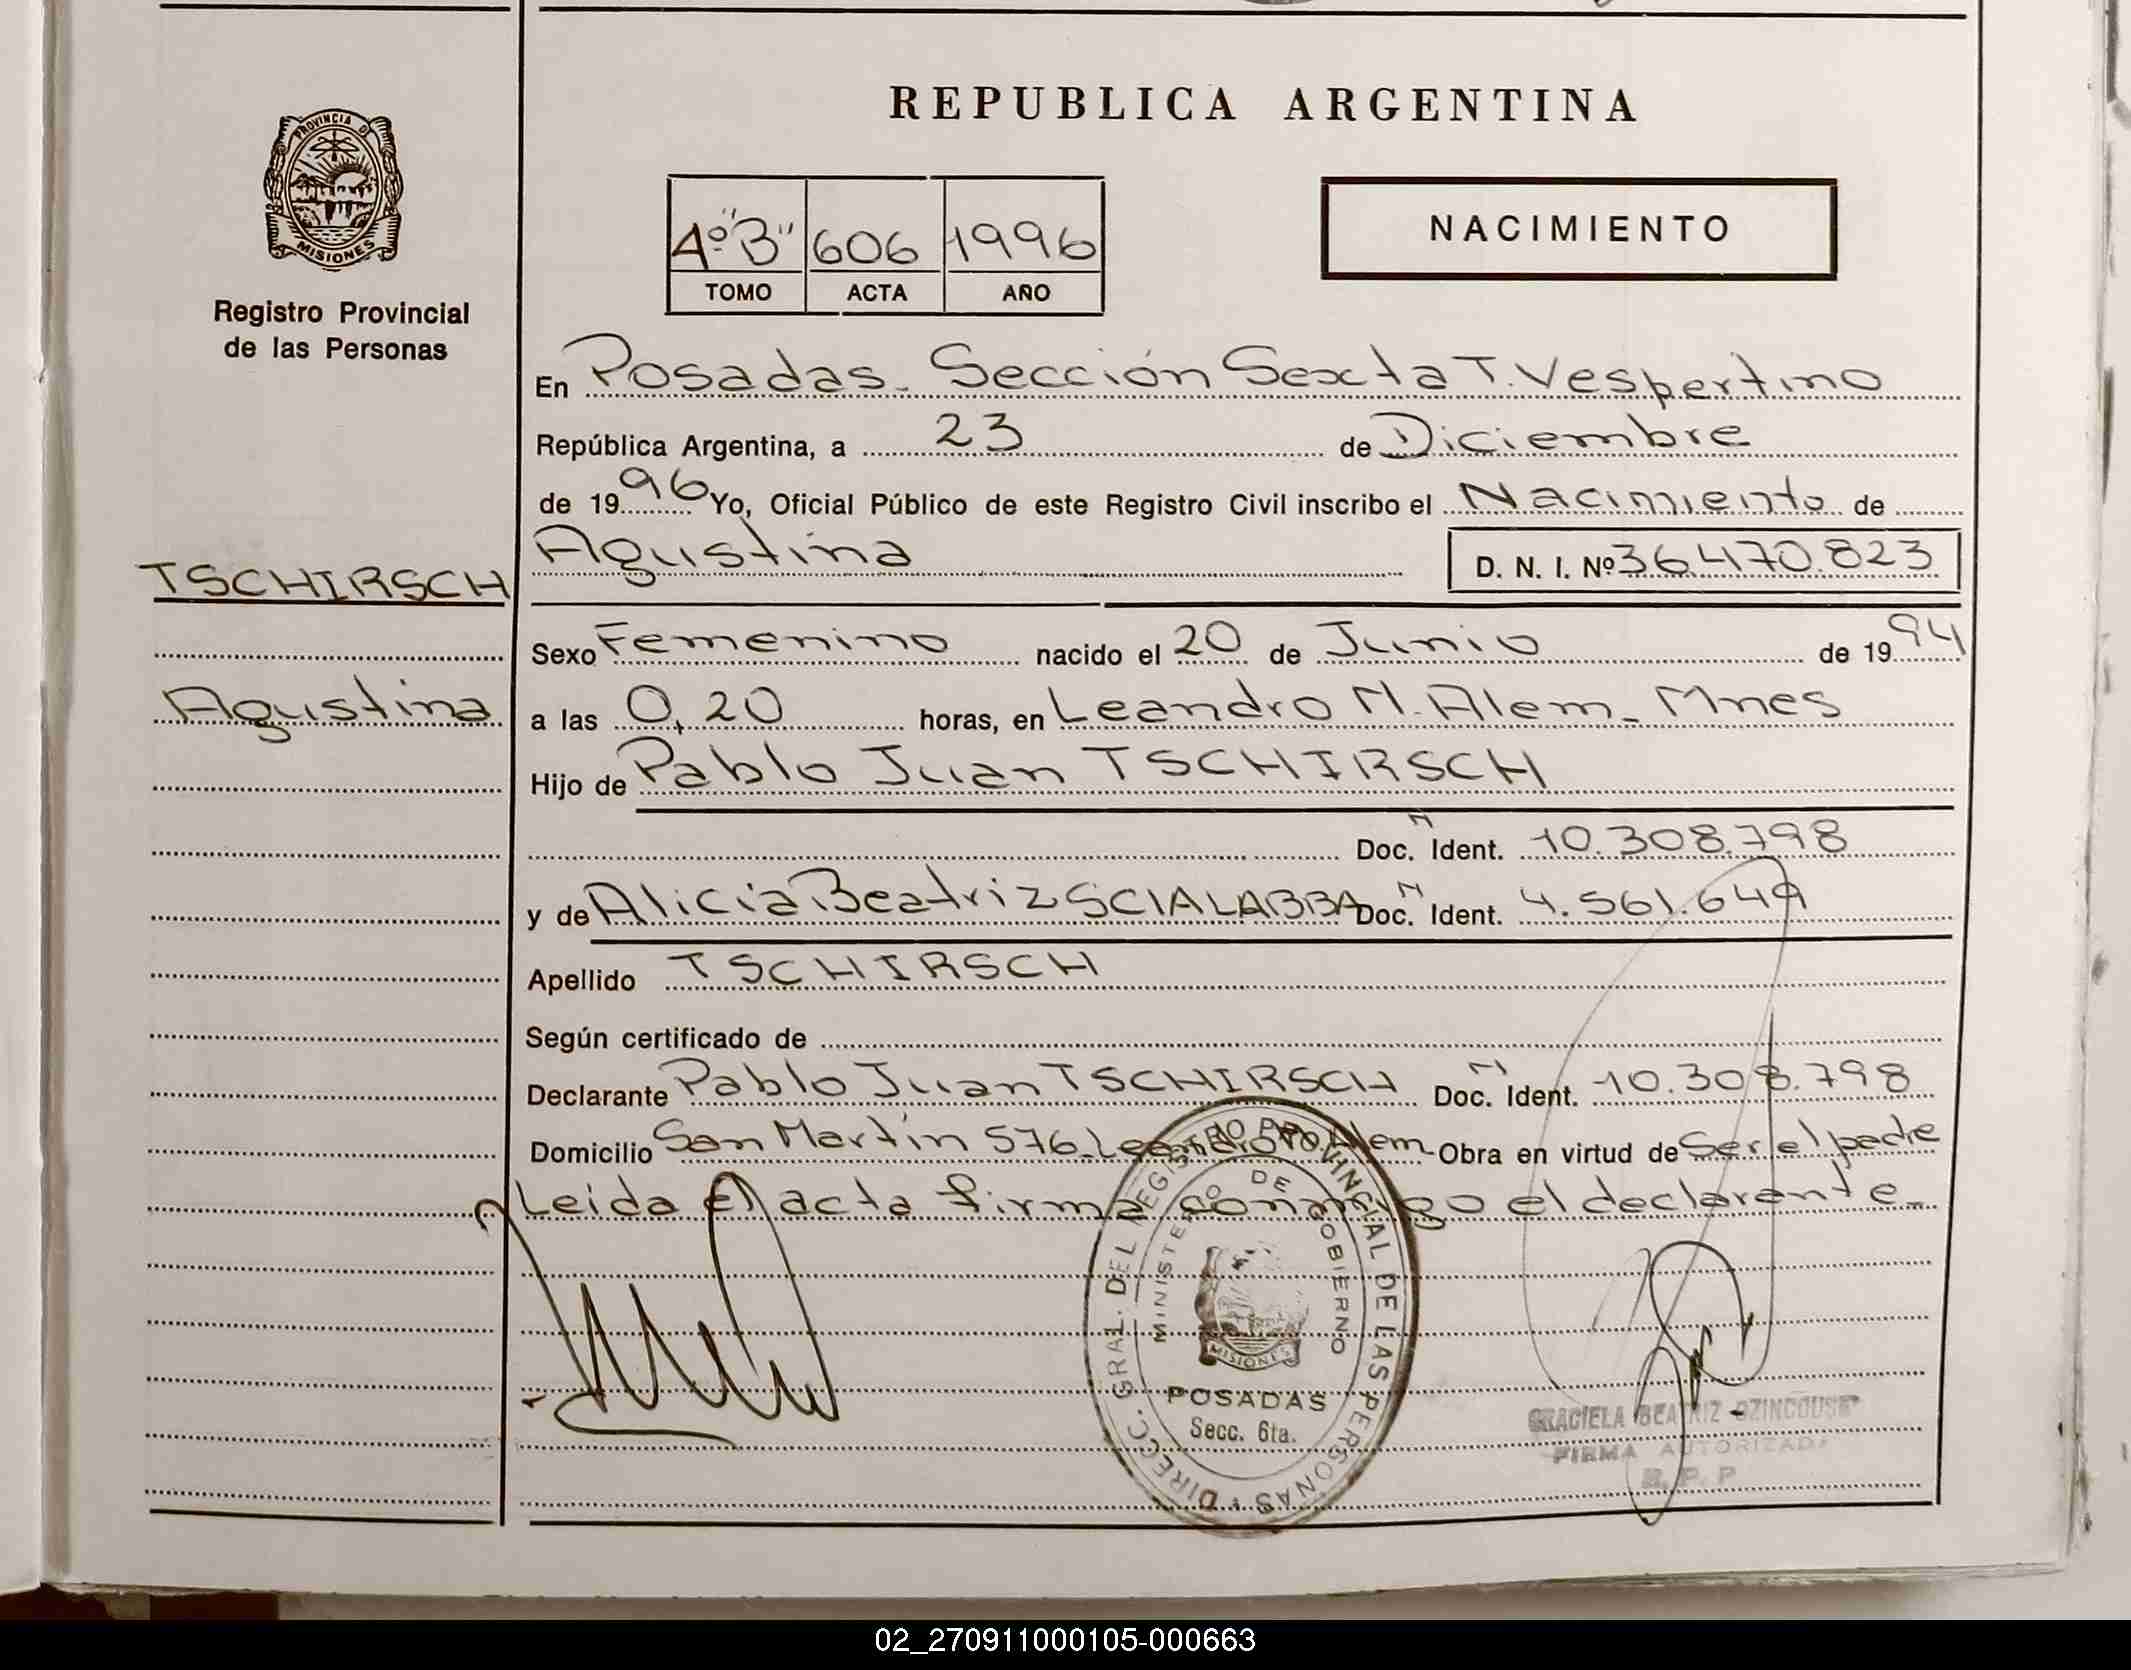 REPUBLICA ARGENTINA
PROVINCIA DE
MISIONES
Registro Provincial
de las Personas
4º "B" 606 1996
TOMO ACTA AÑO
NACIMIENTO
En Posadas - Sección Sexta T. Vespertino
República Argentina, a 23 de Diciembre
de 1996 Yo, Oficial Público de este Registro Civil inscribo el Nacimiento de
Agustina D. N. I. Nº 36.470.823
TSCHIRSCH
Agustina
Sexo Femenino nacido el 20 de Junio de 1994
a las 0,20 horas, en Leandro N. Alem - Mnes
Hijo de Pablo Juan TSCHIRSCH
Doc. Ident. 10.308.798
y de Alicia Beatriz SCIALABBA Doc. Ident. 4.561.649
Apellido TSCHIRSCH
Según certificado de
Declarante Pablo Juan TSCHIRSCH Doc. Ident. 10.308.798
Domicilio San Martín 576 - Leandro N. Alem - Obra en virtud de Ser el padre
Leida el acta firma conmigo el declarante -
DIRECC. GRAL. DEL REGISTRO PROVINCIAL DE LAS PERSONAS
MINISTERIO DE GOBIERNO
MISIONES
POSADAS
Secc. 6ta.
GRACIELA BEATRIZ
FIRMA AUTORIZADA
R. P. P
02_270911000105-000663